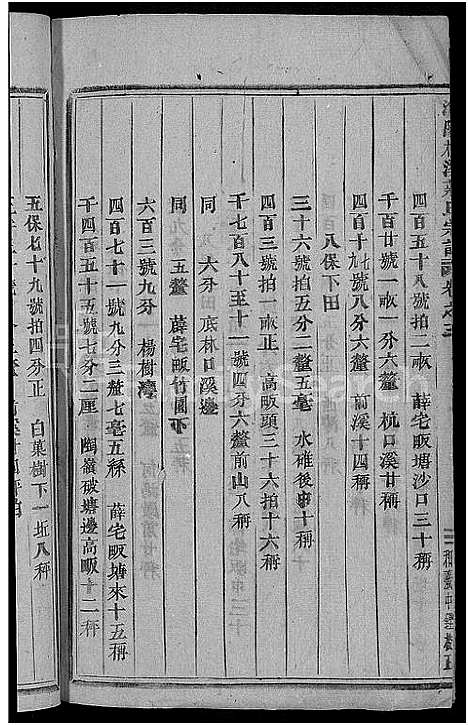 四百五十八號拍二畝　薛宅畈塘沙口三十稱
千百廿號一畝一分六釐　杭口溪廿稱
四百十九號八分六釐　前溪十四稱
八保下田
三十六號拍五分二釐五毫　水碓後　十稱
四百三號拍一畝正　高畈頭三十六拍十六稱
千七百八十至十一號四分六釐前山八稱
同　六分　底林口溪邊
同九分五釐　薛宅畈竹園下
六百三號九分一楊樹灣
四百七十一號九分三釐七毫五絲　薛宅畈塘來十五稱
千四百五十五號七分二厘　嶺破塘邊高畈十二秤
五保 十九號拍四分正　白菓樹下一坵八秤